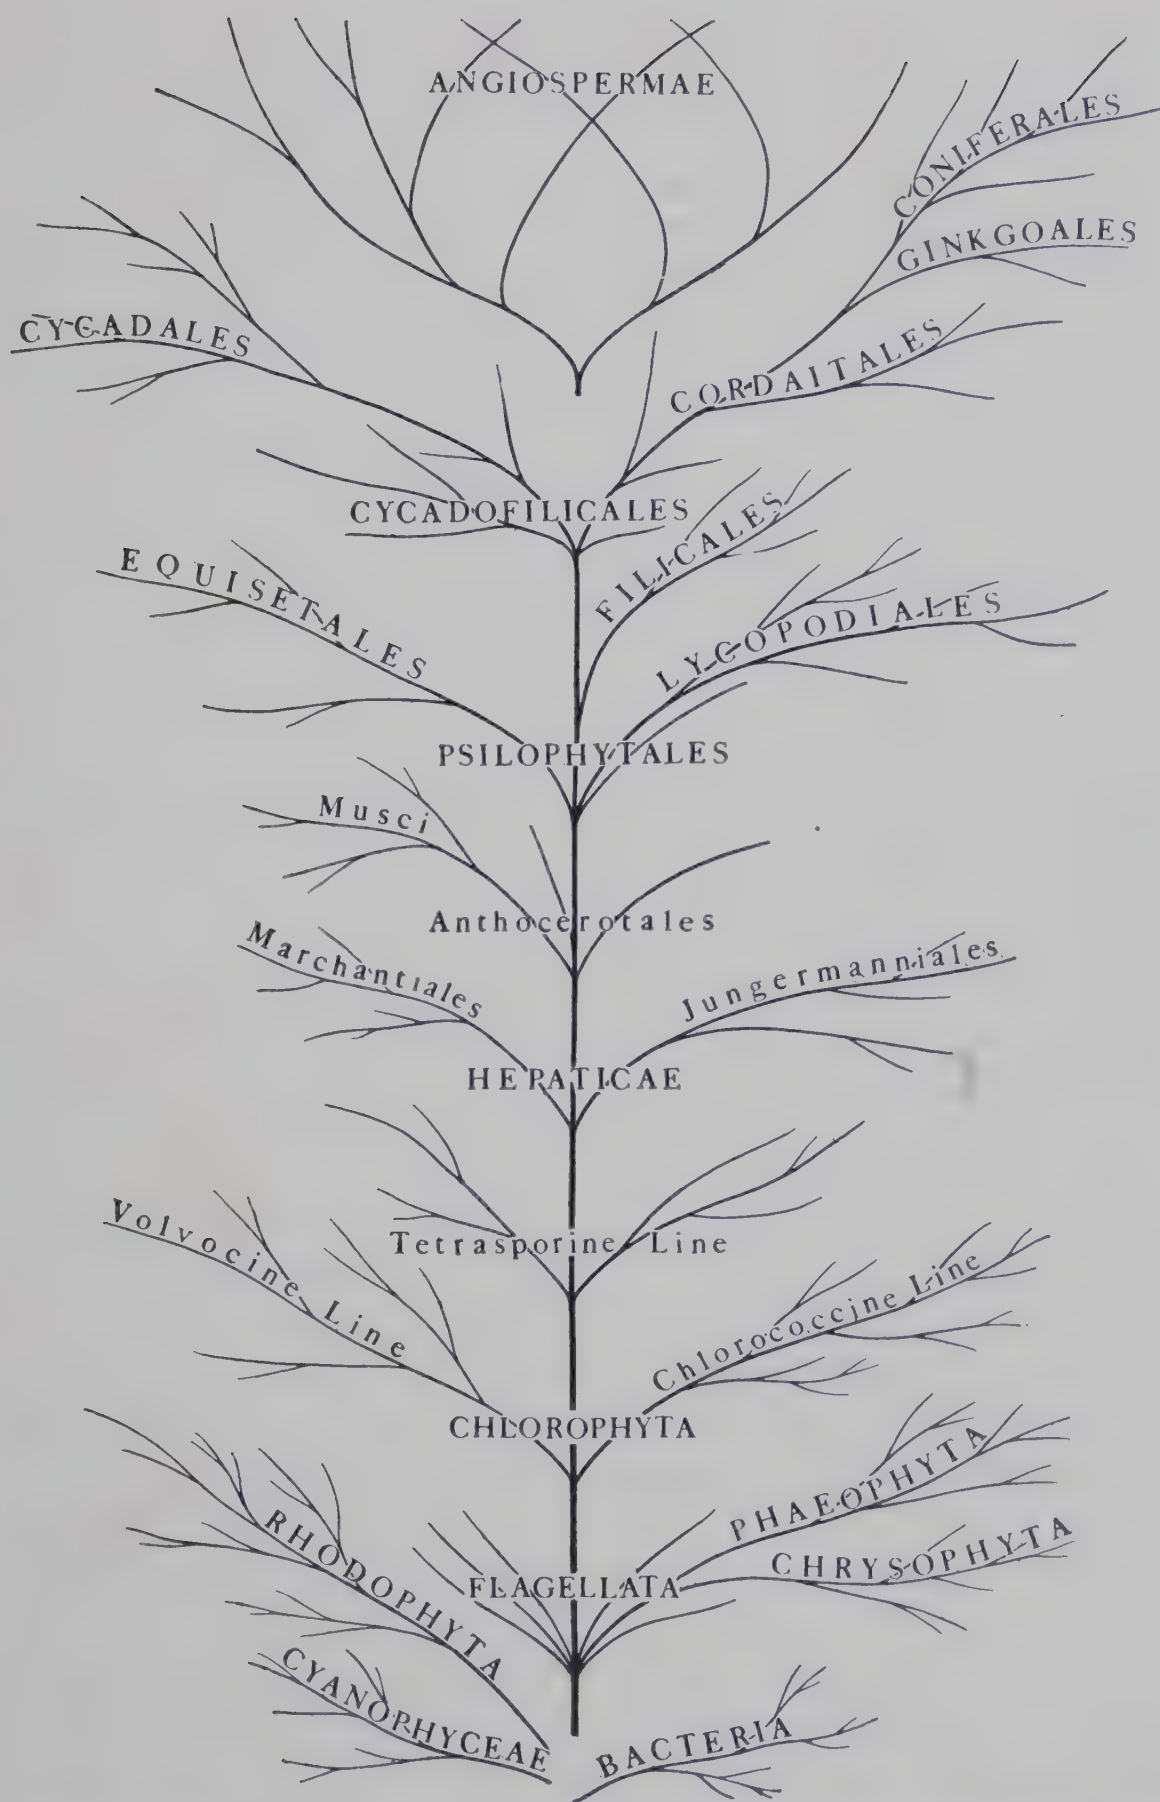 ANGIOSPERMAE
CONIFERALES
GINKGOALES
CYCADALES
CORDAITALES
CYCADOFILICALES
FILICALES
EQUISETALES
LYCOPODIALES
PSILOPHYTALES
Musci
Anthocerotales
Marchantiales
Jungermanniales
HEPATICAE
Volvocine Line
Tetrasporine Line
Chlorococcine Line
CHLOROPHYTA
PHAEOPHYTA
RHODOPHYTA
CHRYSOPHYTA
FLAGELLATA
CYANOPHYCEAE
BACTERIA